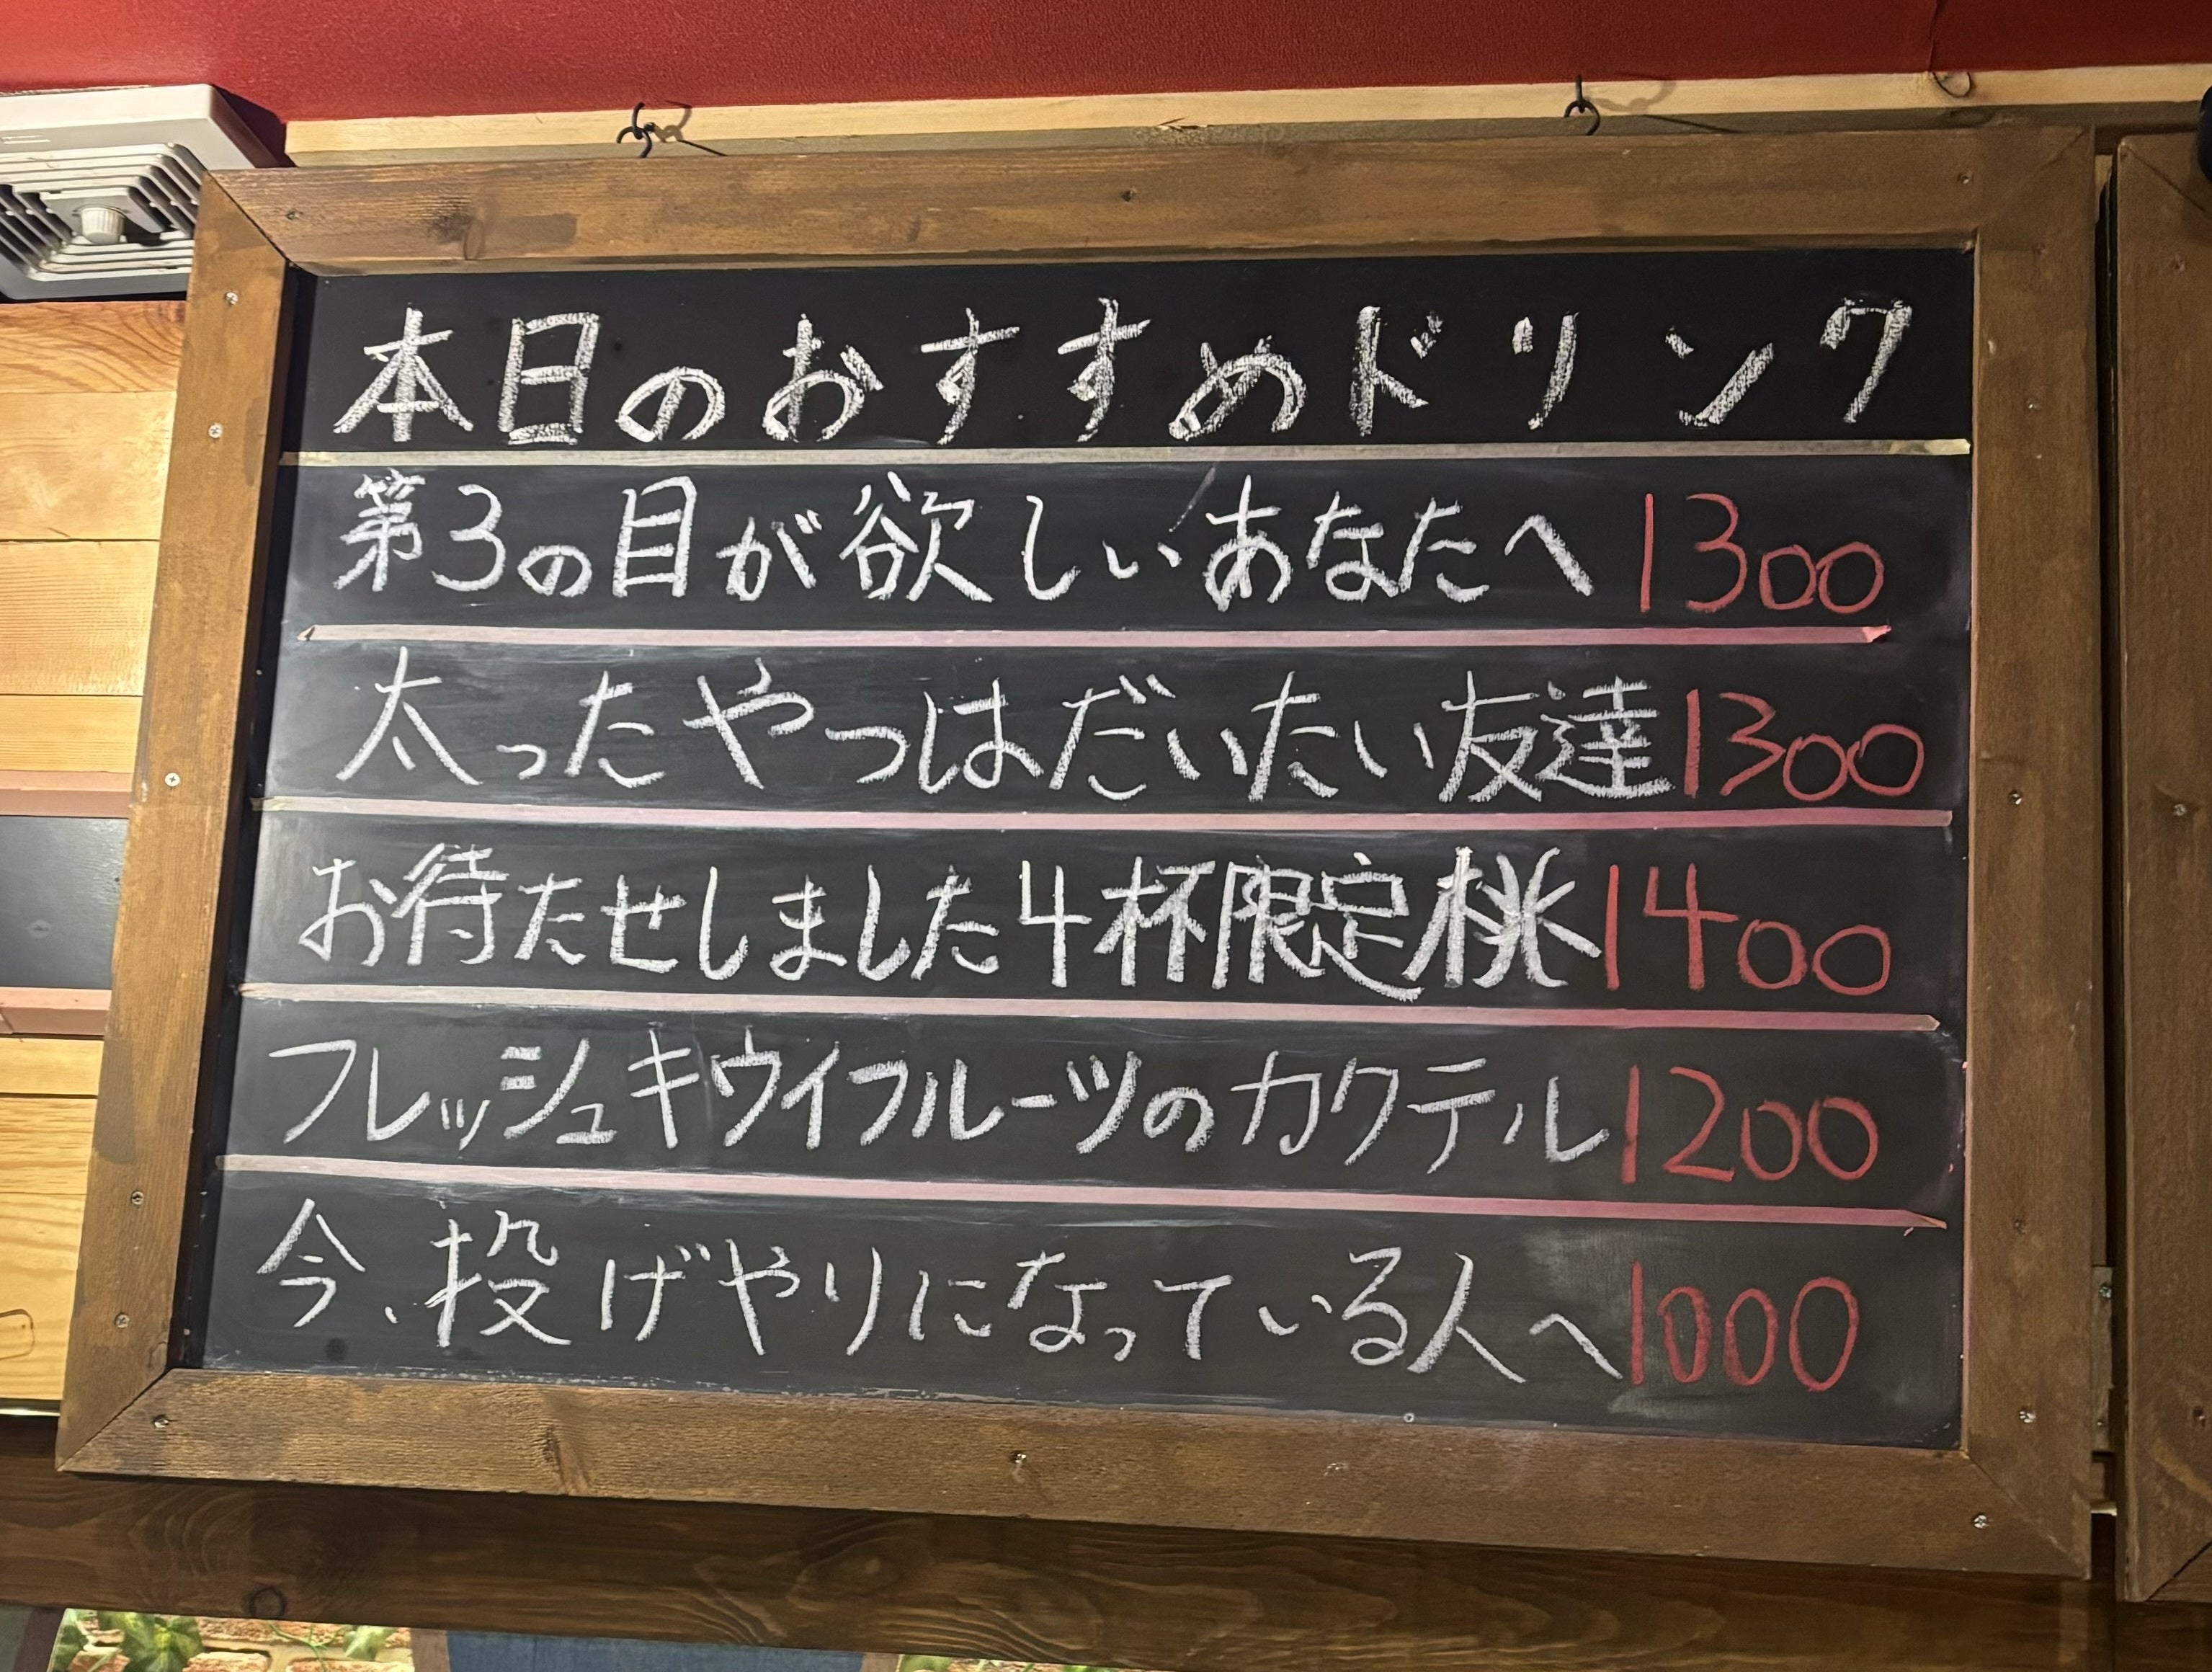 本日のおすすめドリンク
第3の目が欲しいあなたへ 1300
太ったやつはだいたい友達 1300
お待たせしました4杯限定桃 1400
フレッシュキウイフルーツのカクテル 1200
今、投げやりになっている人へ 1000